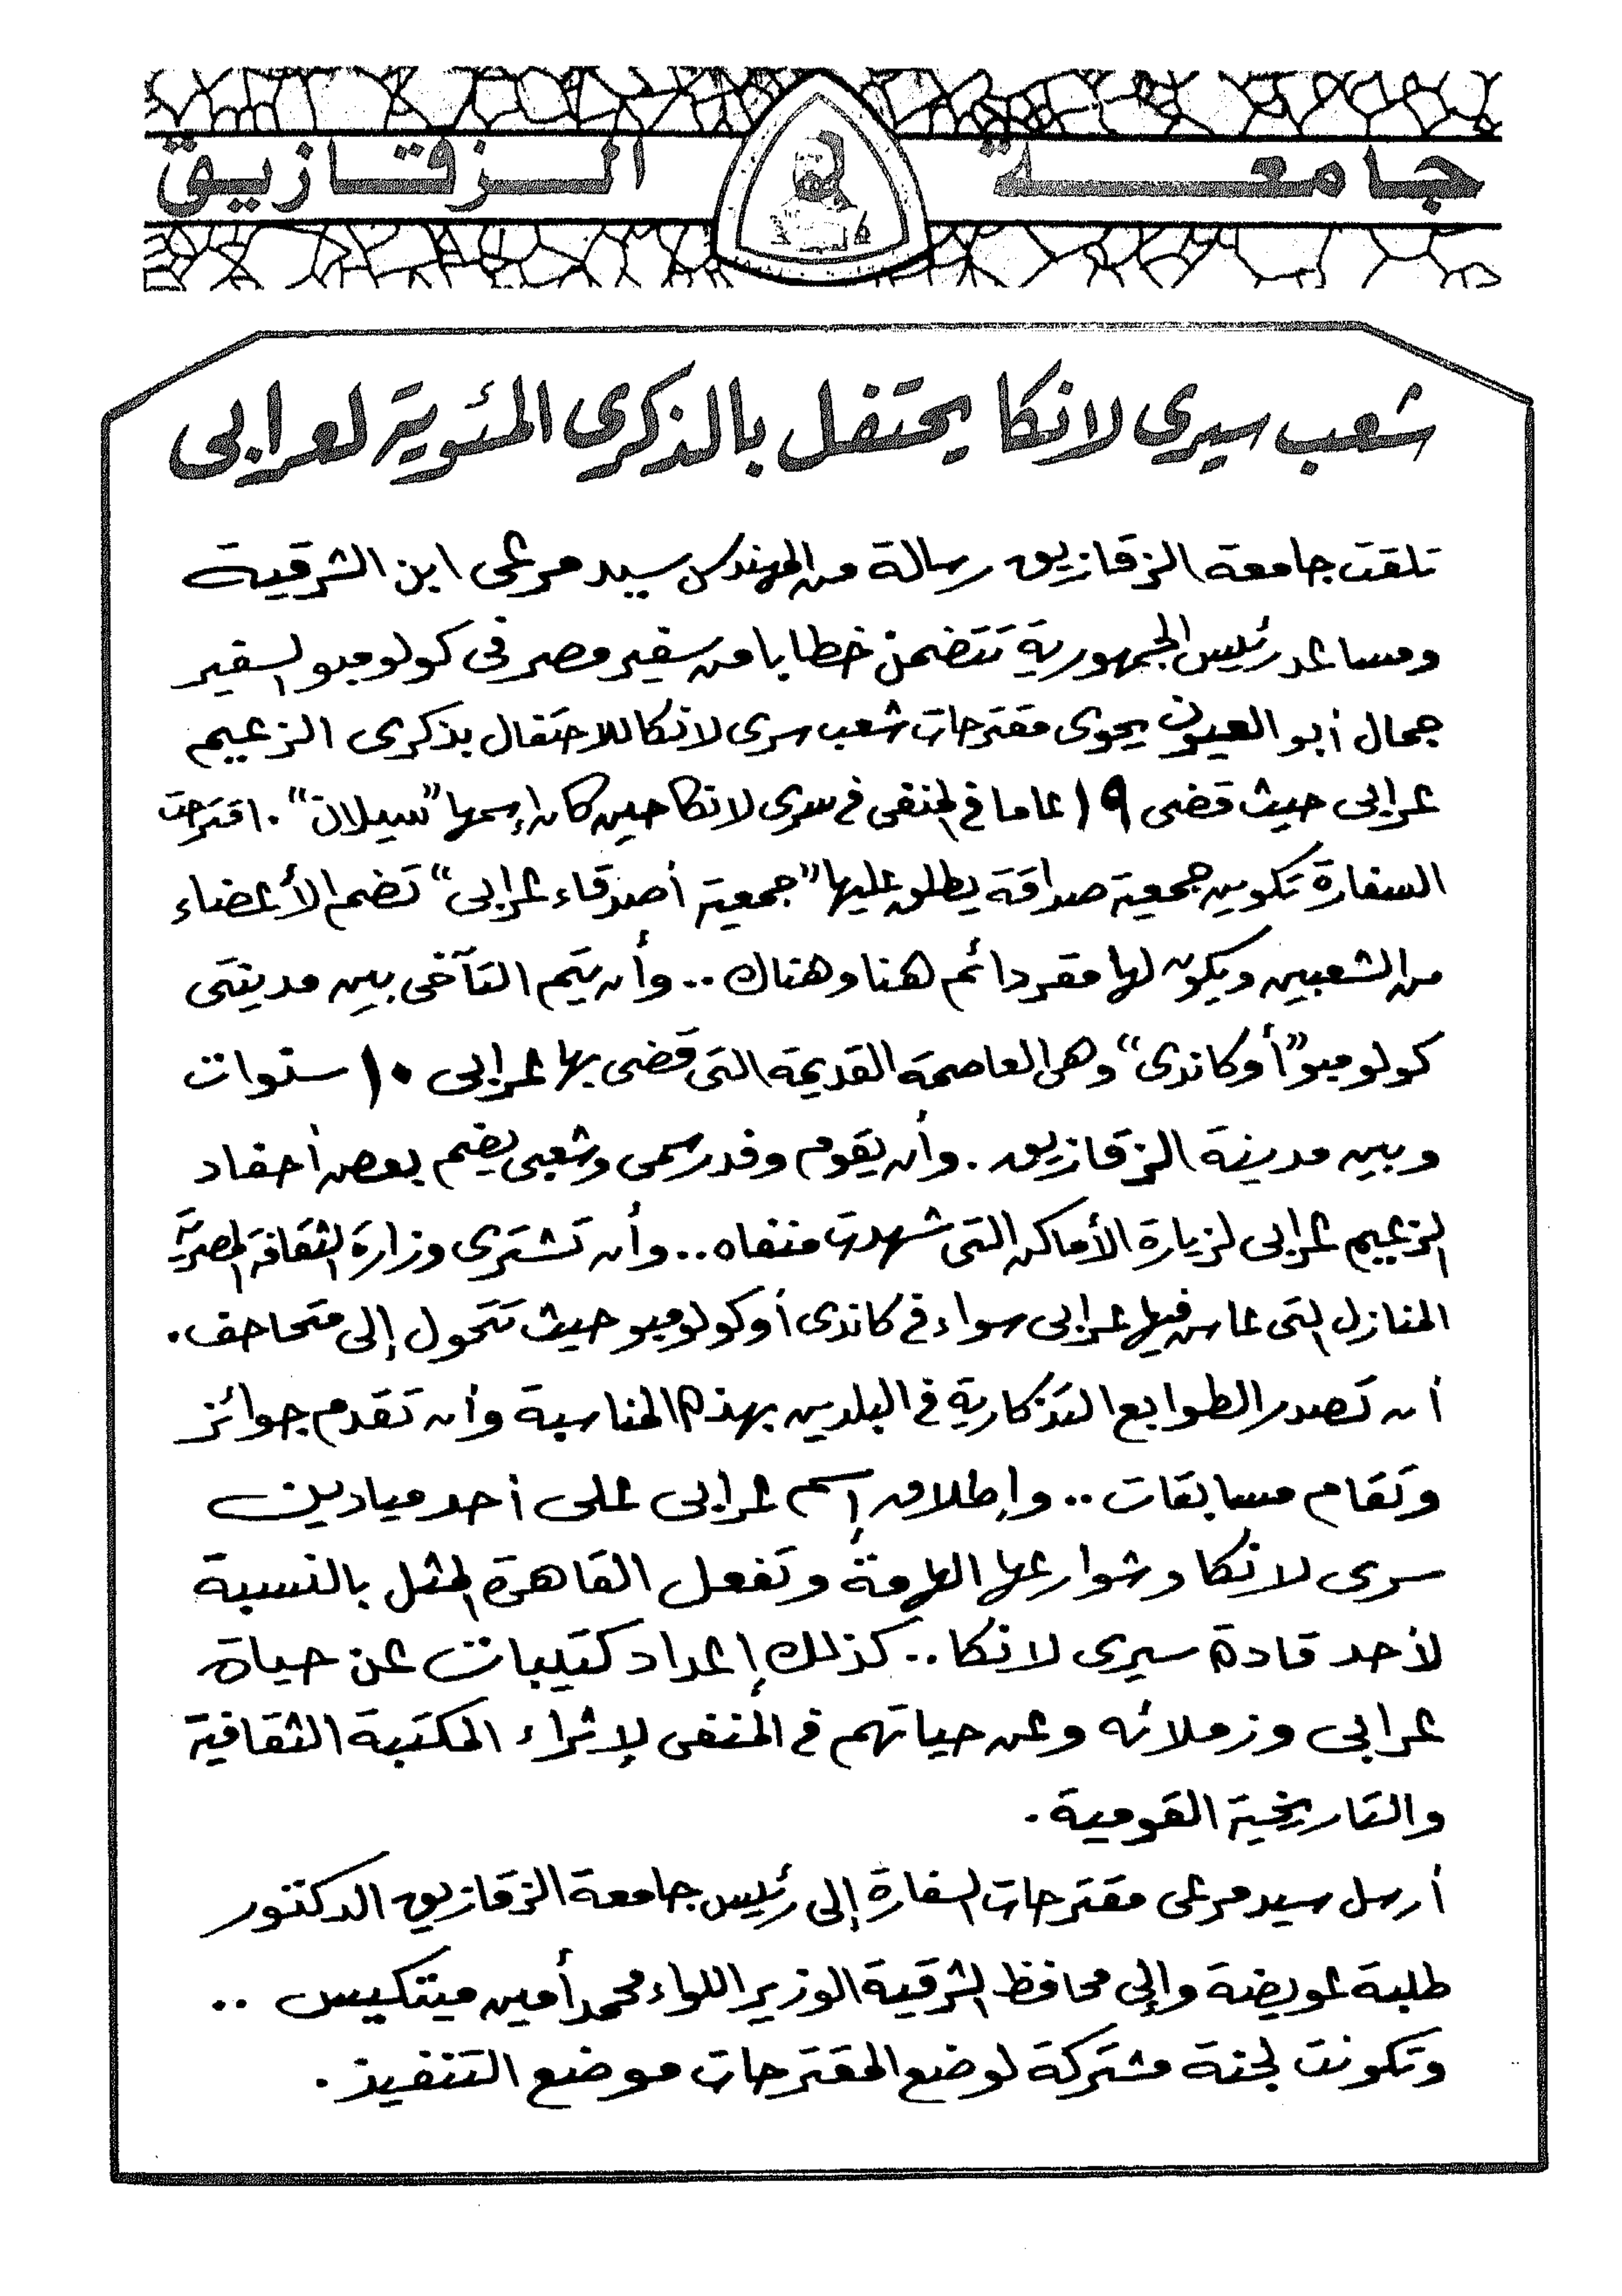 جامعة الزقازيق
شعب سيرى لانكا يحتفل بالذكرى المئوية لعرابى
تلقت جامعة الزقازيق رسالة من المهندس سيد مرعى ابن الشرقية
ومساعد رئيس الجمهورية تتضمن خطابا من سفير مصر فى كولومبو السفير
جمال أبو العيون يحوى مقترحات شعب سرى لانكا للاحتفال بذكرى الزعيم
عرابى حيث قضى ١٩ عاما فى المنفى فى سرى لانكا حين كان إسمها "سيلان" . اقترحت
السفارة تكوين جمعية صداقة يطلق عليها "جمعية أصدقاء عرابى" تضم الأعضاء
من الشعبين ويكون لها مقر دائم هنا وهناك .. وأن يتم التآخى بين مدينتى
كولومبو "أو كاندى" وهى العاصمة القديمة التى قضى بها عرابى ١٠ سنوات
وبين مدينة الزقازيق . وأن يقوم وفد رسمى وشعبى يضم بعض أحفاد
الزعيم عرابى لزيارة الأماكن التى شهدت منفاه .. وأن تشترى وزارة الثقافة المصرية
المنازل التى عاش فيها عرابى سواء فى كاندى أو كولومبو حيث تتحول إلى متحاحف .
أن تصدر الطوابع التذكارية فى البلدين بهذه المناسبة وأن تقدم جوائز
وتقام مسابقات .. وإطلاق إسم عرابى على أحد ميادين
سرى لانكا وشوارعها الهامة وتفعل القاهرة المثل بالنسبة
لأحد قادة سيرى لانكا .. كذلك إعداد كتيبات عن حياة
عرابى وزملائه وعن حياتهم فى المنفى لإثراء المكتبة الثقافية
والتاريخية القومية .
أرسل سيد مرعى مقترحات السفارة إلى رئيس جامعة الزقازيق الدكتور
طلبة عويضة وإلى محافظ الشرقية الوزير اللواء محمد أمين ميتكيس ..
وتكونت لجنة مشتركة لوضع المقترحات موضع التنفيذ .